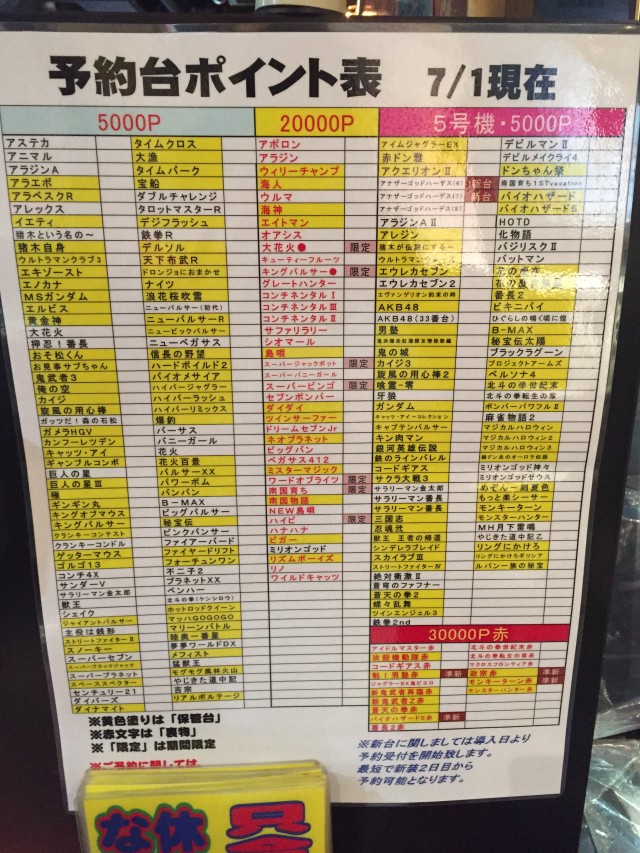 予約台ポイント表 7/1現在
5000P
アステカ
アニマル
アラジンA
アラエボ
アラベスクR
アレックス
イエティ
猪木という名の~
猪木自身
ウルトラマンクラブ3
エキゾースト
エノカナ
MSガンダム
エルビス
黄金神
大花火
押忍!番長
おそ松くん
お見事サブちゃん
鬼武者3
俺の空
カイジ
旋風の用心棒
ガッツだ!森の石松
ガメラHGV
カンフーレツデン
キャッツ・アイ
ギャンブルコンボ
巨人の星
巨人の星Ⅲ
極
ギンギン丸
キングオブマウス
キングパルサー
クランキーコンテスト
クランキーコンドル
ゲッターマウス
ゴルゴ13
コンチ4X
サンダーV
サラリーマン金太郎
獣王
シェイク
ジャイアントパルサー
主役は銭形
ストリートファイターⅡ
スノーキー
スーパーセブン
スーパーブラックジャック
スーパープラネット
スペーススペクター
センチュリー21
ダイバーズ
ダイナマイト
タイムクロス
大漁
タイムパーク
宝船
ダブルチャレンジ
タロットマスターR
デジフラッシュ
鉄拳R
デルソル
天下布武R
ドロンジョにおまかせ
ナイツ
浪花桜吹雪
ニューパルサー(初代)
ニューパルサーR
ニュービッグパルサー
ニューペガサス
信長の野望
ハードボイルド2
バイオメサイア
ハイパージャグラー
ハイパーラッシュ
ハイパーリミックス
爆釣
バーサス
バニーガール
花火
花火百景
パルサーXX
パワーボム
バンバン
B-MAX
秘宝伝
ピンクパンサー
ファイアーバード
ファイヤードリフト
フォーチュンワン
不二子2
プラネットXX
ペンハー
北斗の拳(ケンシロウ)
ホットロッドクイーン
マッハGOGOGO
マリーンバトル
陸奥一番星
夢夢ワールドDX
メフィスト
猛獣王
モグモグ風林火山
やじきた道中記
吉宗
リアルボルテージ
20000P
アポロン
アラジン
ウィリーチャンプ
海人
ウルマ
海神
エイトマン
オアシス
大花火● 限定
キューティーフルーツ
キングパルサー● 限定
グレートハンター
コンチネンタルⅠ
コンチネンタルⅢ
コンチネンタルⅡ
サファリラリー
シオマール
島唄
スーパージャックポット 限定
スーパーバニーガール
スーパービンゴ 限定
セブンボンバー
ダイダイ
ツインサーファー
ドリームセブンJr
ネオプラネット
ビッグバン
ペガサス412
ミスターマジック
ワードオブライツ 限定
南国育ち 限定
南国物語
NEW島唄
ハイビ 限定
ハナハナ
ビガー
ミリオンゴッド
リズムボーイズ
リノ
ワイルドキャッツ
5号機・5000P
アイムジャグラーEX
赤ドン雅
アクエリオンⅡ
アナザーゴッドハーデス(6) 新台
アナザーゴッドハーデス(7) 新台
アラジンAⅡ
アレジン
猪木が伝説にする~
ウルトラマンウォーズ
エウレカセブン
エウレカセブン2
エヴァンゲリオン約束の時
AKB48
AKB48(33番台)
男塾
鬼の城
カイジ3
旋風の用心棒2
喰霊-零
牙狼
ガンダム
キャッツ・アイ~コレクション
キャプテンパルサー
キン肉マン
銀河英雄伝説
鉄のラインバレル
コードギアス
サクラ大戦3
サラリーマン金太郎
サラリーマン番長
サラリーマン番長
三国志
忍魂弐
獣王 王者の帰還
シンデレラブレイド
スカイラブⅢ
ストリートファイターⅣ
絶対衝激Ⅱ
蒼穹のファフナー
蒼天の拳2
蝶々乱舞
ツインエンジェル3
鉄拳2nd
デビルマンⅡ
デビルメイクライ4
ドンちゃん祭
南国育ち1STvacation
バイオハザード
バイオハザード5
HOTD
化物語
バジリスクⅡ
バットマン
花の慶次
番長2
ビキニパイ
ひぐらしの鳴く頃に煌
B-MAX
秘宝伝太陽
ブラックラグーン
プロジェクトアームズ
ペルソナ4
北斗の拳世紀末
北斗の拳転生の章
ボンバーパワフルⅡ
麻雀物語2
マジカルハロウィン2
マジカルハロウィン3
緑ドン炎のオーロラ伝説
ミリオンゴッド神々
ミリオンゴッドゼウス
めぞん一刻夏色
もっと楽シーサー
モンキーターン
モンスターハンター
MH月下雷鳴
やじきた道中記乙
リングにかけろ
リングにかけろギリシア
ルパン一族の秘宝
30000P赤
アイドルマスター赤
攻殻機動隊赤
コードギアス赤
魁!男塾赤 準新
ジャグラーEX鬼ピエロ
新鬼武者再臨赤
新鬼武者Z赤
蒼天の拳赤
バイオハザード5赤 準新
番長2赤
北斗の拳世紀末赤
北斗の拳転生の章赤
マクロスフロンティア赤
政宗赤 準新
モンキーターン赤 準新
モンスターハンター赤
※黄色塗りは「保管台」
※赤文字は「裏物」
※「限定」は期間限定
※ご予約に関しては、
※新台に関しましては導入日より
予約受付を開始致します。
最短で新装2日目から
予約可能となります。